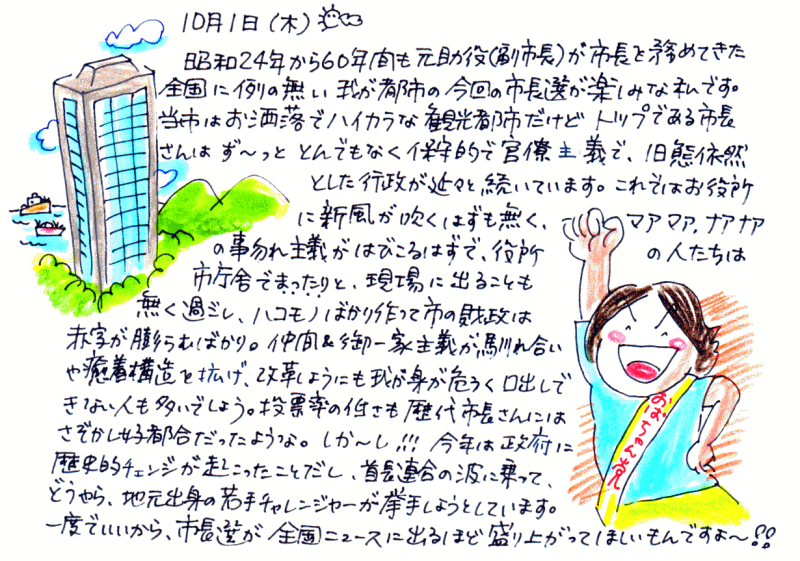 10月1日(木)
昭和24年から60年間も元助役(副市長)が市長を務めてきた
全国に例の無い我が都市の今回の市長選が楽しみな私です。
当市はお洒落でハイカラな観光都市だけどトップである市長
さんはず〜っととんでもなく保守的で官僚主義で、旧態依然
とした行政が延々と続いています。これではお役所
に新風が吹くはずも無く、マアマア,ナアナア
の事勿れ主義がはびこるはずで、役所の人たちは
市庁舎でまったりと、現場に出ることも
無く過ごし、ハコモノばかり作って市の財政は
赤字が膨らむばかり。仲間&御一家主義が馴れ合い
や癒着構造を拡げ、改革しようにも我が身が危うく口出しで
きない人も多いでしょう。投票率の低さも歴代市長さんには
さぞかし好都合だったような。しか〜し!!!今年は政府に
歴史的チェンジが起こったことだし、首長連合の波に乗って、
どうやら、地元出身の若手チャレンジャーが挙手しようとしています。
一度でいいから、市長選が全国ニュースに出るほど盛り上がってほしいもんですよ〜!!